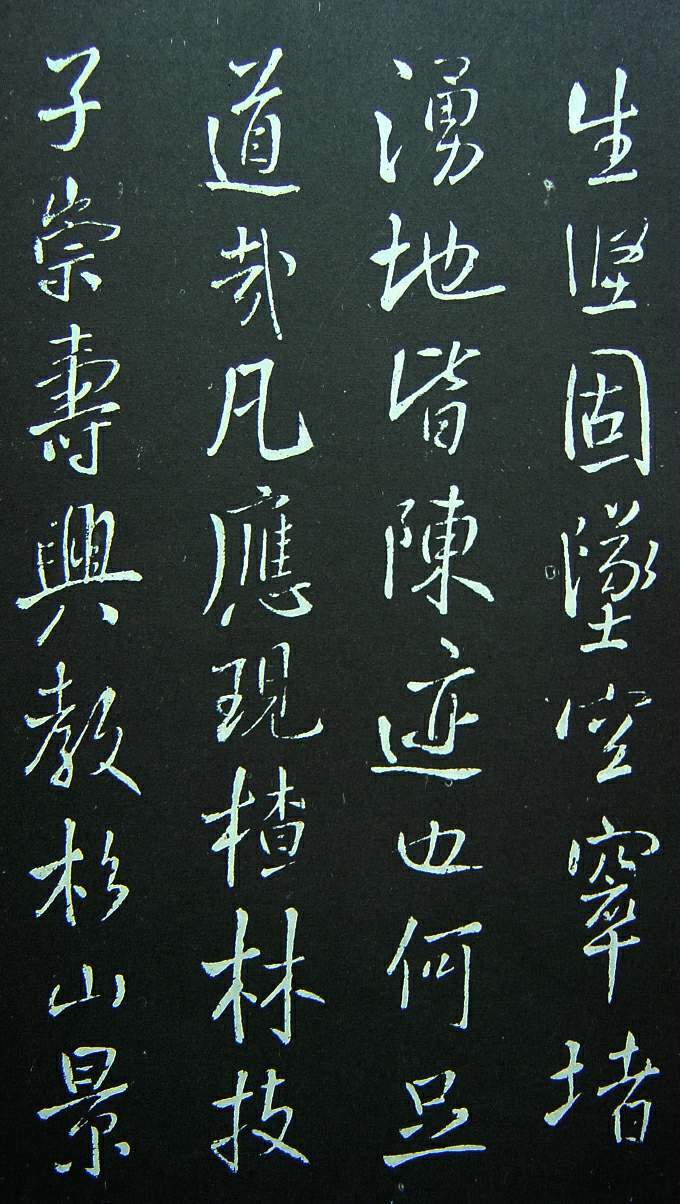 生堅固墜空窣堵
湧地皆陳迹也何足
道哉凡應現楂林技
子崇壽興教杉山景